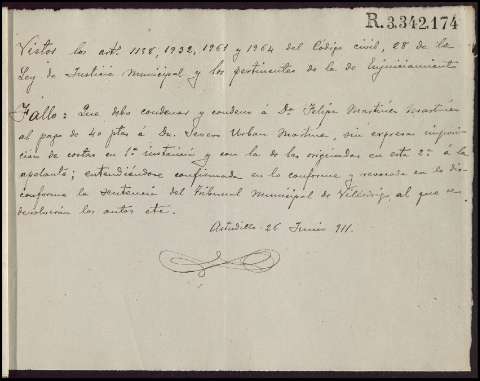 R.3.342.174
Vistos los artˢ 1138, 1932, 1961 y 1964 del Código civil, 28 de la
Ley de Justicia Municipal y los pertinentes de la de Enjuiciamiento
Fallo: Que debo condenar y condeno á Dⁿ Felipe Martínez Martínez
al pago de 40 ptas á Dn. Severo Urban Martínez, sin expresa imposi-
ción de costas en 1ª instancia y con la de las originadas en esta 2ª á la
apelante; entendiéndose confirmada en lo conforme y revocada en lo dis-
conforme la sentencia del Tribunal Municipal de Villodrigo, al que se
devolverán los autos etc.
Astudillo 26 Junio 911.